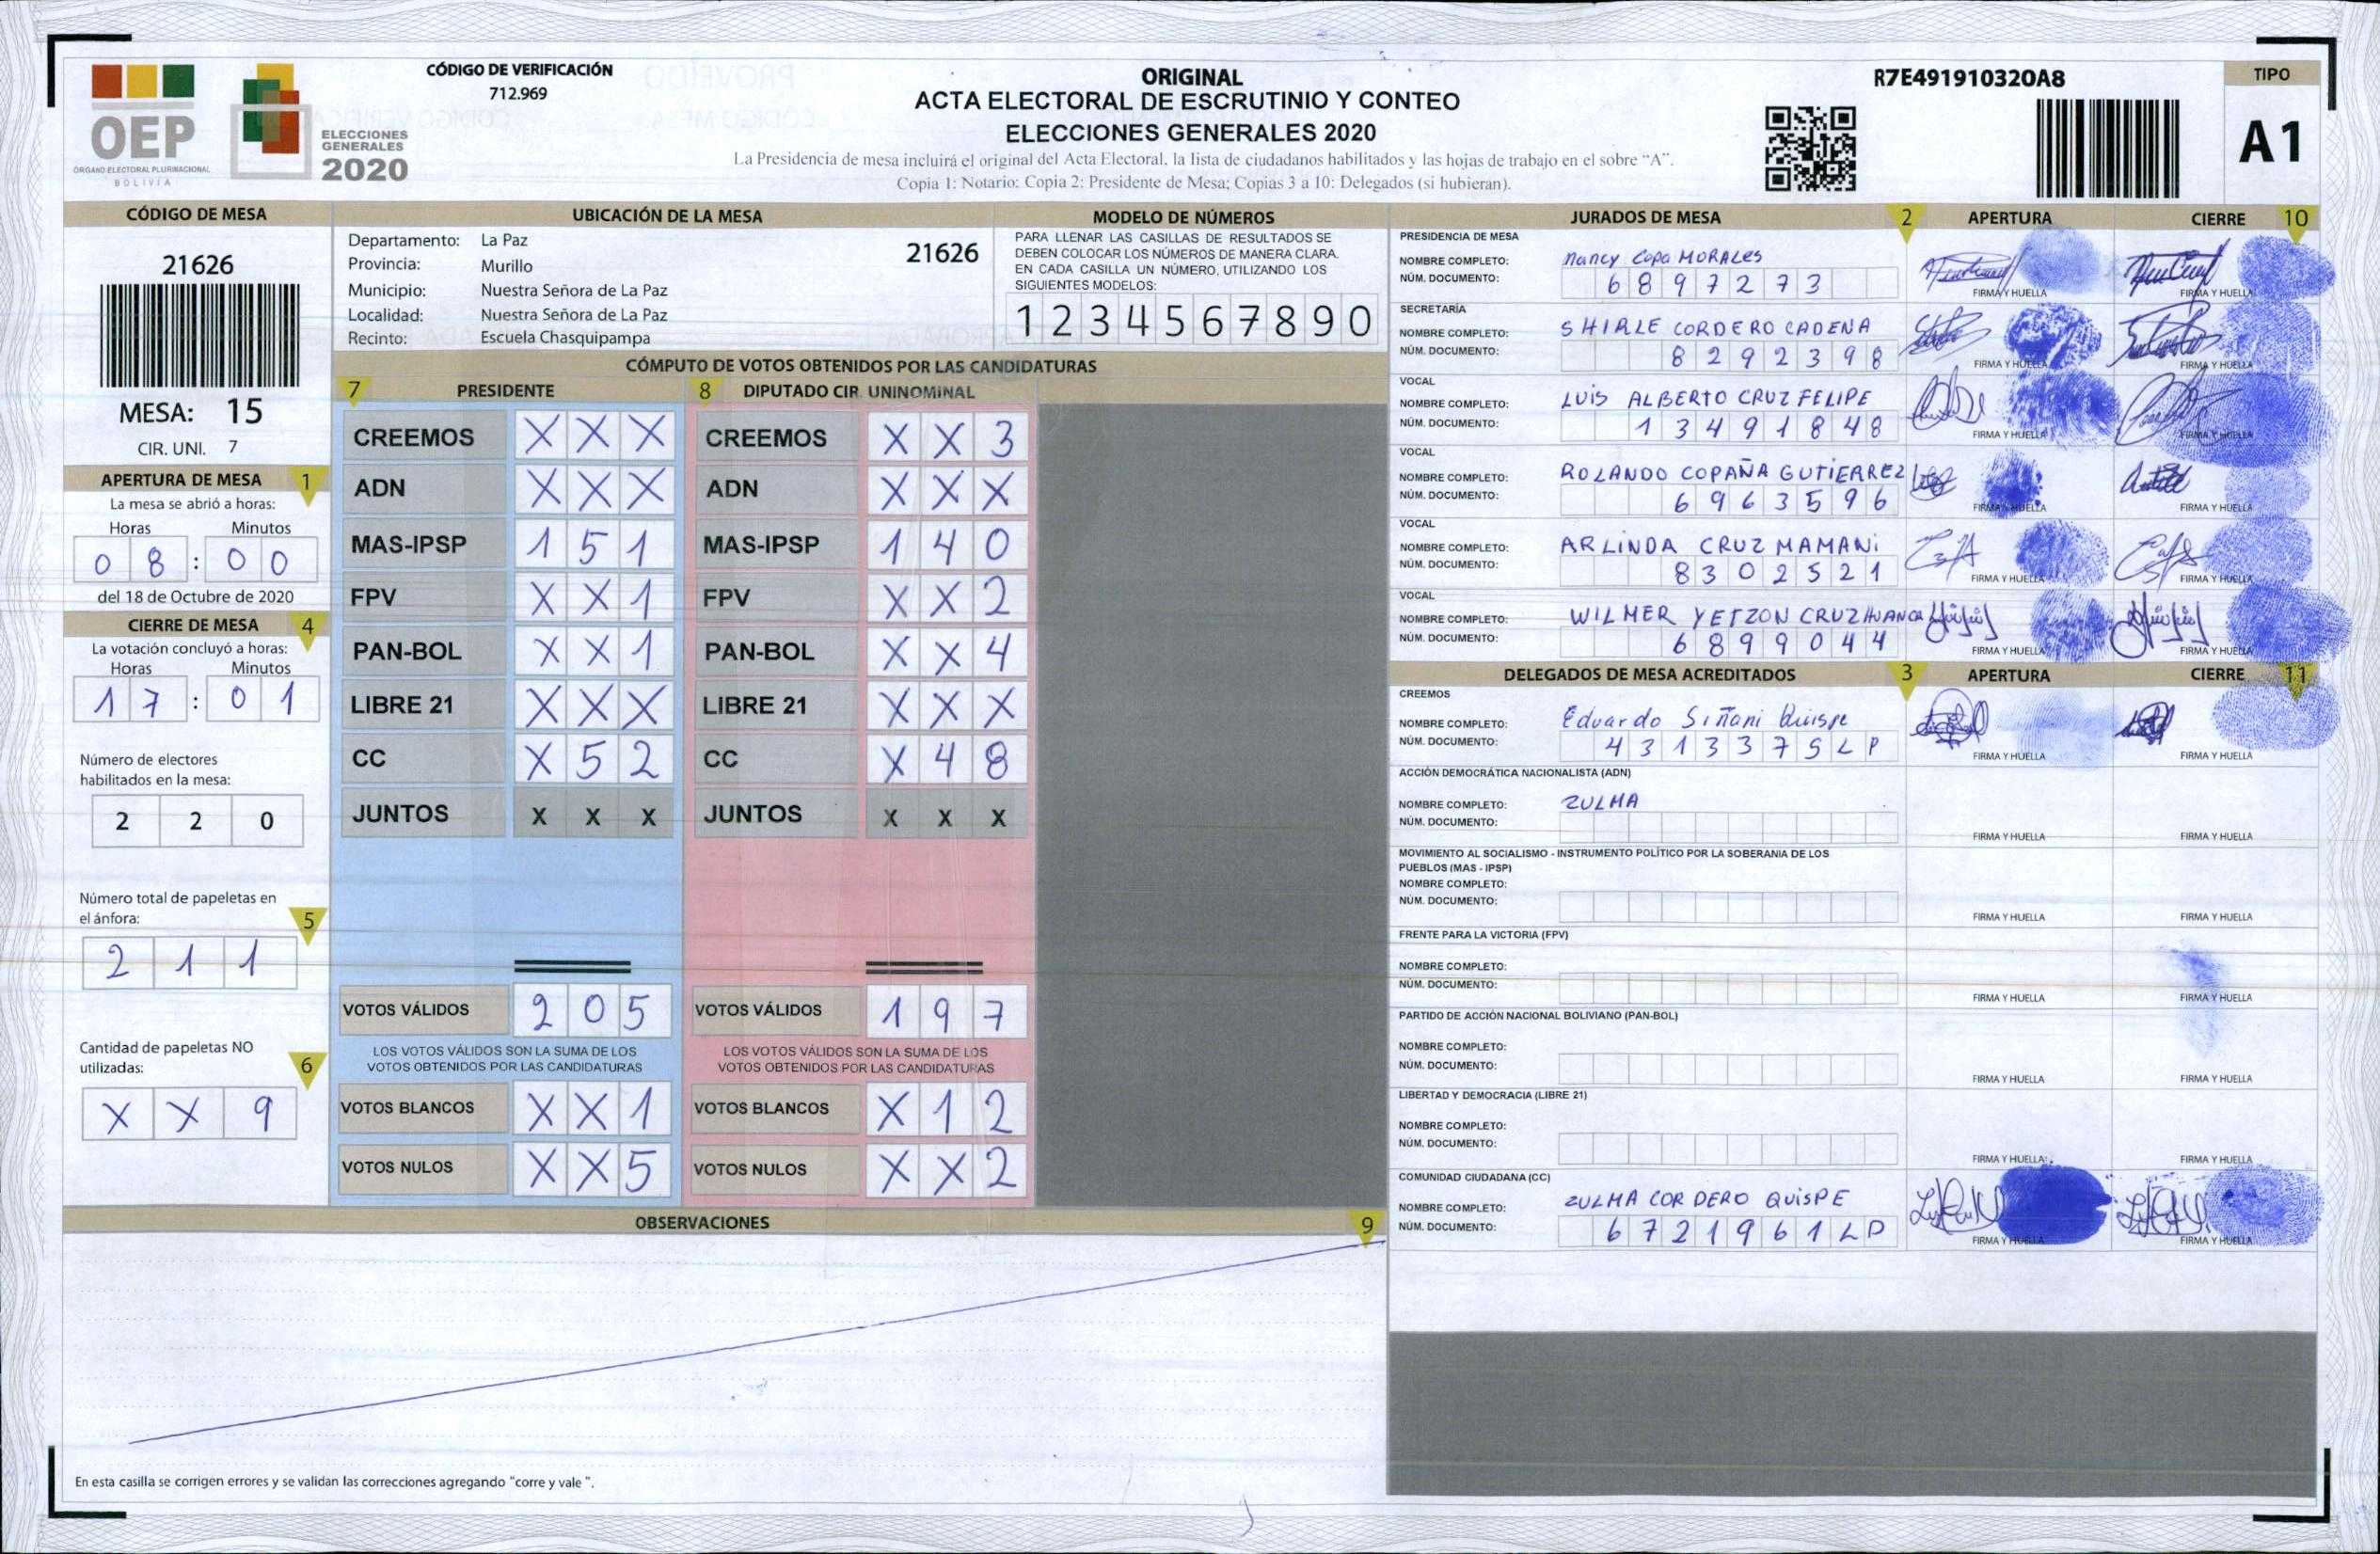 OEP
ÓRGANO ELECTORAL PLURINACIONAL
BOLIVIA
ELECCIONES
GENERALES
2020
CÓDIGO DE VERIFICACIÓN
712.969
ORIGINAL
ACTA ELECTORAL DE ESCRUTINIO Y CONTEO
ELECCIONES GENERALES 2020
La Presidencia de mesa incluirá el original del Acta Electoral, la lista de ciudadanos habilitados y las hojas de trabajo en el sobre "A".
Copia 1: Notario; Copia 2: Presidente de Mesa; Copias 3 a 10: Delegados (si hubieran).
R7E491910320A8
TIPO
A1
CÓDIGO DE MESA
21626
MESA: 15
CIR. UNI. 7
APERTURA DE MESA 1
La mesa se abrió a horas:
Horas Minutos
0 8 : 0 0
del 18 de Octubre de 2020
CIERRE DE MESA 4
La votación concluyó a horas:
Horas Minutos
1 7 : 0 1
Número de electores
habilitados en la mesa:
2 2 0
Número total de papeletas en
el ánfora: 5
2 1 1
Cantidad de papeletas NO
utilizadas: 6
X X 9
UBICACIÓN DE LA MESA
Departamento: La Paz 21626
Provincia: Murillo
Municipio: Nuestra Señora de La Paz
Localidad: Nuestra Señora de La Paz
Recinto: Escuela Chasquipampa
MODELO DE NÚMEROS
PARA LLENAR LAS CASILLAS DE RESULTADOS SE
DEBEN COLOCAR LOS NÚMEROS DE MANERA CLARA.
EN CADA CASILLA UN NÚMERO, UTILIZANDO LOS
SIGUIENTES MODELOS:
1 2 3 4 5 6 7 8 9 0
CÓMPUTO DE VOTOS OBTENIDOS POR LAS CANDIDATURAS
7 PRESIDENTE 8 DIPUTADO CIR. UNINOMINAL
CREEMOS X X X CREEMOS X X 3
ADN X X X ADN X X X
MAS-IPSP 1 5 1 MAS-IPSP 1 4 0
FPV X X 1 FPV X X 2
PAN-BOL X X 1 PAN-BOL X X 4
LIBRE 21 X X X LIBRE 21 X X X
CC X 5 2 CC X 4 8
JUNTOS X X X JUNTOS X X X
VOTOS VÁLIDOS 2 0 5 VOTOS VÁLIDOS 1 9 7
LOS VOTOS VÁLIDOS SON LA SUMA DE LOS LOS VOTOS VÁLIDOS SON LA SUMA DE LOS
VOTOS OBTENIDOS POR LAS CANDIDATURAS VOTOS OBTENIDOS POR LAS CANDIDATURAS
VOTOS BLANCOS X X 1 VOTOS BLANCOS X 1 2
VOTOS NULOS X X 5 VOTOS NULOS X X 2
OBSERVACIONES 9
En esta casilla se corrigen errores y se validan las correcciones agregando "corre y vale ".
JURADOS DE MESA 2 APERTURA CIERRE 10
PRESIDENCIA DE MESA
NOMBRE COMPLETO: Nancy Copa MORALES
NÚM. DOCUMENTO: 6 8 9 7 2 7 3
FIRMA Y HUELLA FIRMA Y HUELLA
SECRETARÍA
NOMBRE COMPLETO: SHIRLE CORDERO CADENA
NÚM. DOCUMENTO: 8 2 9 2 3 9 8
FIRMA Y HUELLA FIRMA Y HUELLA
VOCAL
NOMBRE COMPLETO: LUIS ALBERTO CRUZ FELIPE
NÚM. DOCUMENTO: 1 3 4 9 1 8 4 8
FIRMA Y HUELLA FIRMA Y HUELLA
VOCAL
NOMBRE COMPLETO: ROLANDO COPAÑA GUTIERREZ
NÚM. DOCUMENTO: 6 9 6 3 5 9 6
FIRMA Y HUELLA FIRMA Y HUELLA
VOCAL
NOMBRE COMPLETO: ARLINDA CRUZ MAMANI
NÚM. DOCUMENTO: 8 3 0 2 5 2 1
FIRMA Y HUELLA FIRMA Y HUELLA
VOCAL
NOMBRE COMPLETO: WILMER YETZON CRUZ HUANCA
NÚM. DOCUMENTO: 6 8 9 9 0 4 4
FIRMA Y HUELLA FIRMA Y HUELLA
DELEGADOS DE MESA ACREDITADOS 3 APERTURA CIERRE 11
CREEMOS
NOMBRE COMPLETO: Eduardo Siñani Quispe
NÚM. DOCUMENTO: 4 3 1 3 3 7 5 L P
FIRMA Y HUELLA FIRMA Y HUELLA
ACCIÓN DEMOCRÁTICA NACIONALISTA (ADN)
NOMBRE COMPLETO: ZULMA
NÚM. DOCUMENTO:
FIRMA Y HUELLA FIRMA Y HUELLA
MOVIMIENTO AL SOCIALISMO - INSTRUMENTO POLÍTICO POR LA SOBERANIA DE LOS
PUEBLOS (MAS - IPSP)
NOMBRE COMPLETO:
NÚM. DOCUMENTO:
FIRMA Y HUELLA FIRMA Y HUELLA
FRENTE PARA LA VICTORIA (FPV)
NOMBRE COMPLETO:
NÚM. DOCUMENTO:
FIRMA Y HUELLA FIRMA Y HUELLA
PARTIDO DE ACCIÓN NACIONAL BOLIVIANO (PAN-BOL)
NOMBRE COMPLETO:
NÚM. DOCUMENTO:
FIRMA Y HUELLA FIRMA Y HUELLA
LIBERTAD Y DEMOCRACIA (LIBRE 21)
NOMBRE COMPLETO:
NÚM. DOCUMENTO:
FIRMA Y HUELLA FIRMA Y HUELLA
COMUNIDAD CIUDADANA (CC)
NOMBRE COMPLETO: ZULMA CORDERO QUISPE
NÚM. DOCUMENTO: 6 7 2 1 9 6 1 L P
FIRMA Y HUELLA FIRMA Y HUELLA